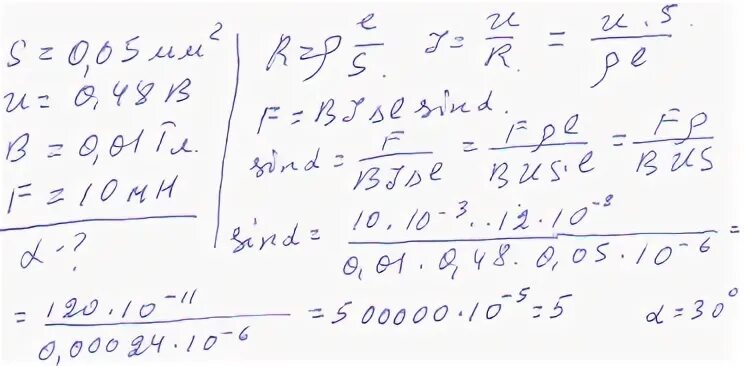 S = 0,05 мм²
u = 0,48 В
B = 0,01 Тл.
F = 10 мН
α - ?
R = ρ l/S. I = u/R. = u.S/ρl
F = B I Δl sin α.
sin α = F/BIΔl = Fρl/BUS·l = Fρ/BUS
sin α = 10·10⁻³··12·10⁻⁸/0,01·0,48·0,05·10⁻⁶ =
= 120·10⁻¹¹/0,00024·10⁻⁶ = 500000·10⁻⁵ = 5 α = 30⁰